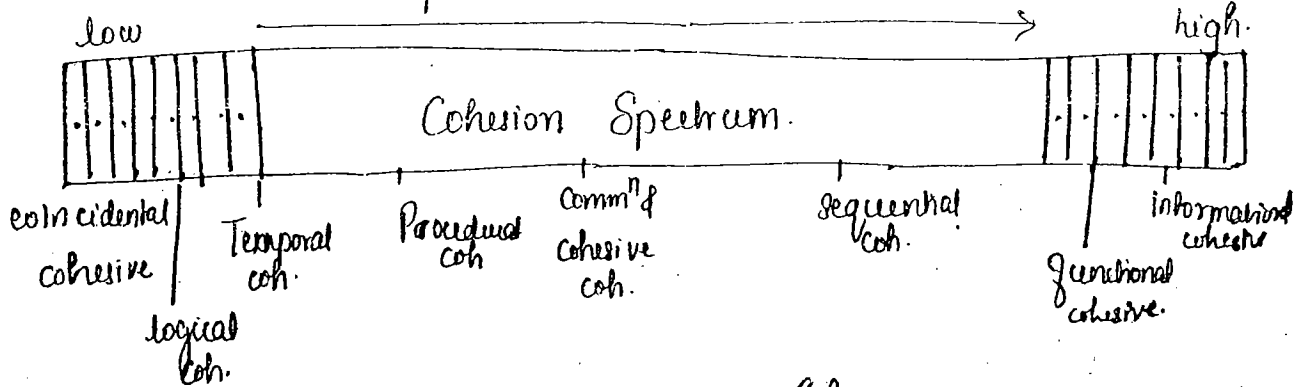 low
high.
Cohesion Spectrum.
coincidental
cohesive
logical
coh.
Temporal
coh.
Procedural
coh
commⁿ &
cohesive
coh.
sequential
coh.
functional
cohesive.
informational
cohesive